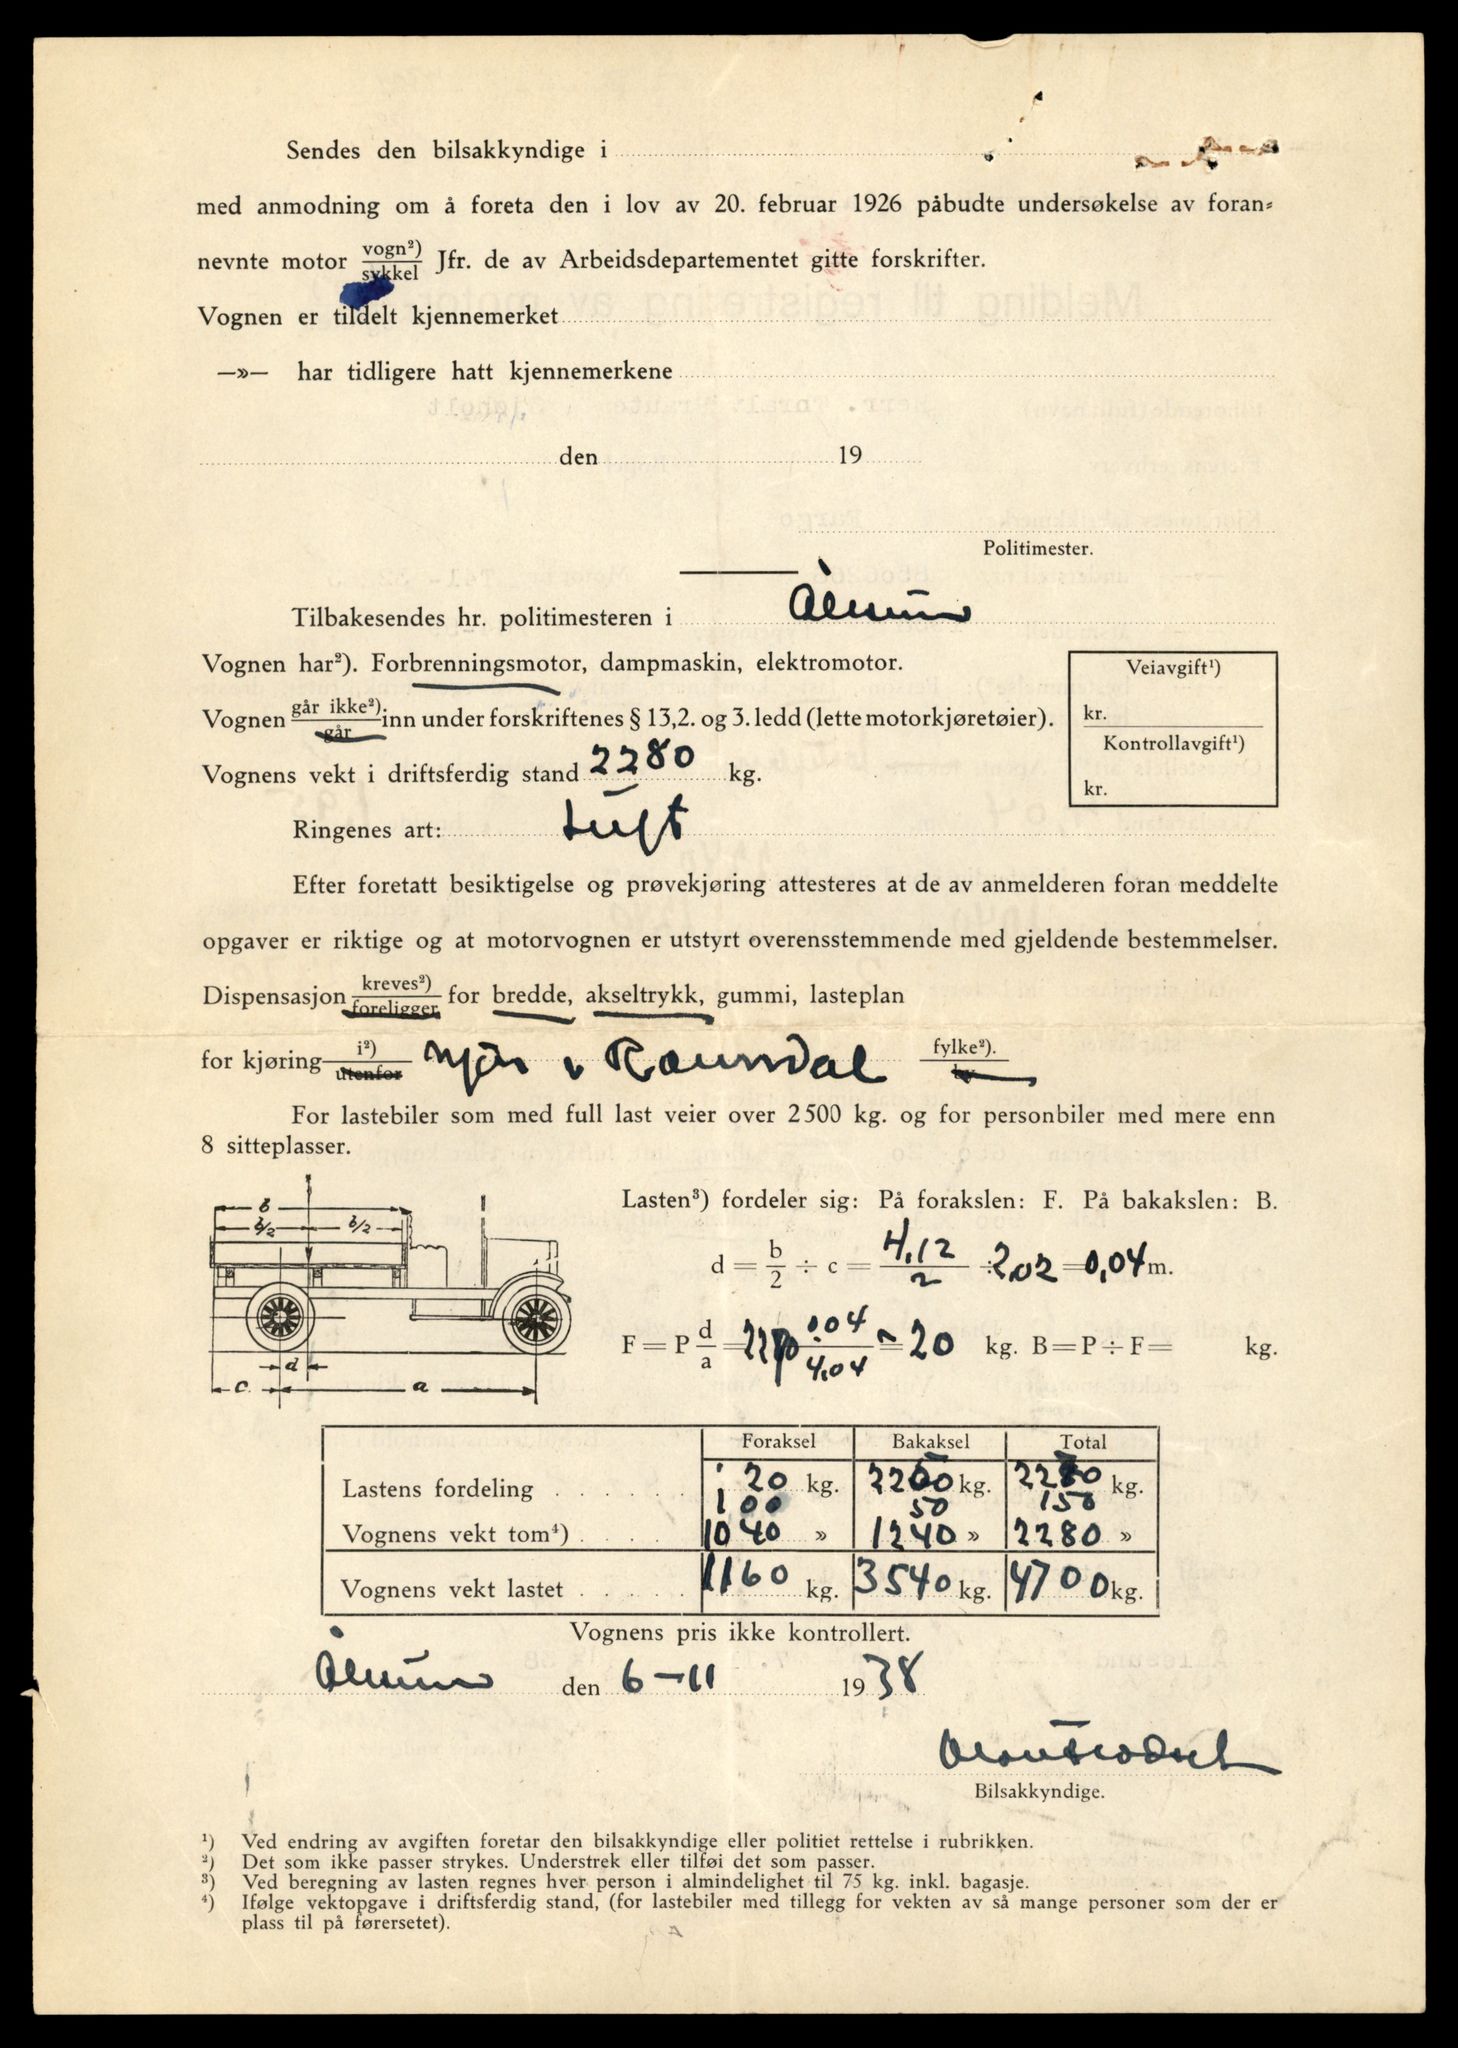 Sendes den bilsakkyndige i
med anmodning om å foreta den i lov av 20. februar 1926 påbudte undersøkelse av foran=
nevnte motor vogn²) sykkel Jfr. de av Arbeidsdepartementet gitte forskrifter.
Vognen er tildelt kjennemerket
—»— har tidligere hatt kjennemerkene
den 19
Politimester.
Tilbakesendes hr. politimesteren i Ålesund
Vognen har²). Forbrenningsmotor, dampmaskin, elektromotor.
Veiavgift¹)
Vognen går ikke²). går inn under forskriftenes § 13,2. og 3. ledd (lette motorkjøretøier).
kr.
Kontrollavgift¹)
Vognens vekt i driftsferdig stand 2280 kg.
kr.
Ringenes art: Luft
Efter foretatt besiktigelse og prøvekjøring attesteres at de av anmelderen foran meddelte
opgaver er riktige og at motorvognen er utstyrt overensstemmende med gjeldende bestemmelser.
Dispensasjon kreves²) foreligger for bredde, akseltrykk, gummi, lasteplan
for kjøring i²) utenfor Romsdal fylke²). by
For lastebiler som med full last veier over 2500 kg. og for personbiler med mere enn
8 sitteplasser.
b
b/2 b/2
d
c. a
Lasten³) fordeler sig: På forakslen: F. På bakakslen: B.
d = b/2 ÷ c = 4,12/2 ÷ 2,02 = 0,04 m.
F = P d/a = 0.04/4.04 = 20 kg. B = P ÷ F = kg.
Foraksel Bakaksel Total
Lastens fordeling . . . . . . 20 kg. 2200 kg. 2220 kg.
100 50 150
Vognens vekt tom⁴) . . . . . 1040 » 1240 » 2280 »
Vognens vekt lastet . . . . . 1160 kg. 3540 kg. 4700 kg.
Vognens pris ikke kontrollert.
Ålesund den 6-11 1938
Bilsakkyndige.
¹) Ved endring av avgiften foretar den bilsakkyndige eller politiet rettelse i rubrikken.
²) Det som ikke passer strykes. Understrek eller tilføi det som passer.
³) Ved beregning av lasten regnes hver person i almindelighet til 75 kg. inkl. bagasje.
⁴) Ifølge vektopgave i driftsferdig stand, (for lastebiler med tillegg for vekten av så mange personer som der er
plass til på førersetet).